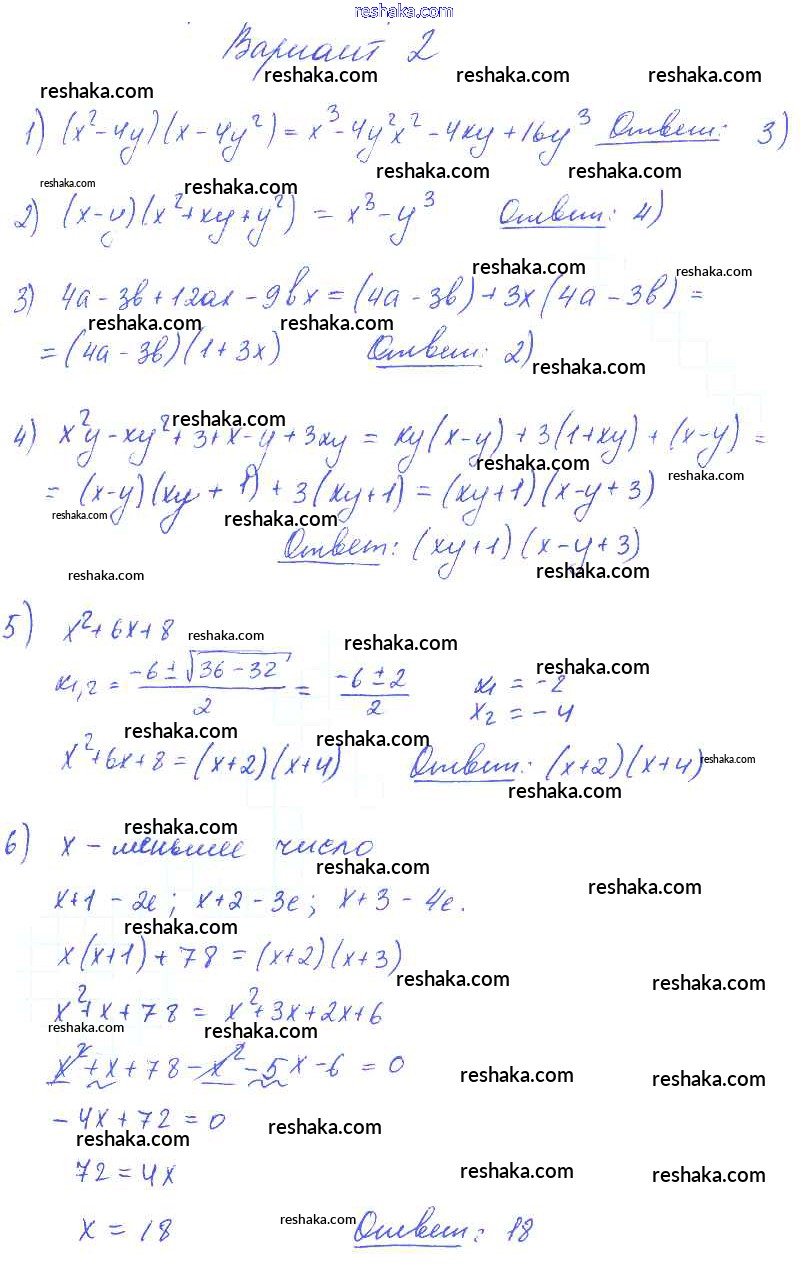 reshaka.com
Вариант 2
reshaka.com reshaka.com reshaka.com
reshaka.com
1) (x²-4y)(x-4y²) = x³-4y²x²-4xy+16y³ Ответ: 3)
reshaka.com reshaka.com
reshaka.com reshaka.com
2) (x-y)(x²+xy+y²) = x³-y³ Ответ: 4)
reshaka.com reshaka.com
3) 4a-3b+12ax-9bx=(4a-3b)+3x(4a-3b)=
reshaka.com reshaka.com
=(4a-3b)(1+3x) Ответ: 2)
reshaka.com
reshaka.com
4) x²y-xy²+3+x-y+3xy = xy(x-y)+3(1+xy)+(x-y)=
reshaka.com reshaka.com
= (x-y)(xy+1)+3(xy+1)=(xy+1)(x-y+3)
reshaka.com reshaka.com
Ответ: (xy+1)(x-y+3)
reshaka.com reshaka.com
5) x²+6x+8
reshaka.com reshaka.com
reshaka.com
x1,2 = (-6±√36-32)/2 = (-6±2)/2 x1 = -2
x2 = -4
reshaka.com reshaka.com
x²+6x+8=(x+2)(x+4) Ответ: (x+2)(x+4)
reshaka.com
reshaka.com
reshaka.com
6) x - меньшее число
reshaka.com
reshaka.com
x+1 - 2е; x+2 - 3е; x+3 - 4е.
reshaka.com
x(x+1)+78=(x+2)(x+3)
reshaka.com reshaka.com
x²+x+78 = x²+3x+2x+6
reshaka.com reshaka.com
x²+x+78-x²-5x-6=0
reshaka.com reshaka.com
-4x+72=0
reshaka.com reshaka.com
72=4x
reshaka.com reshaka.com
x = 18 reshaka.com Ответ: 18